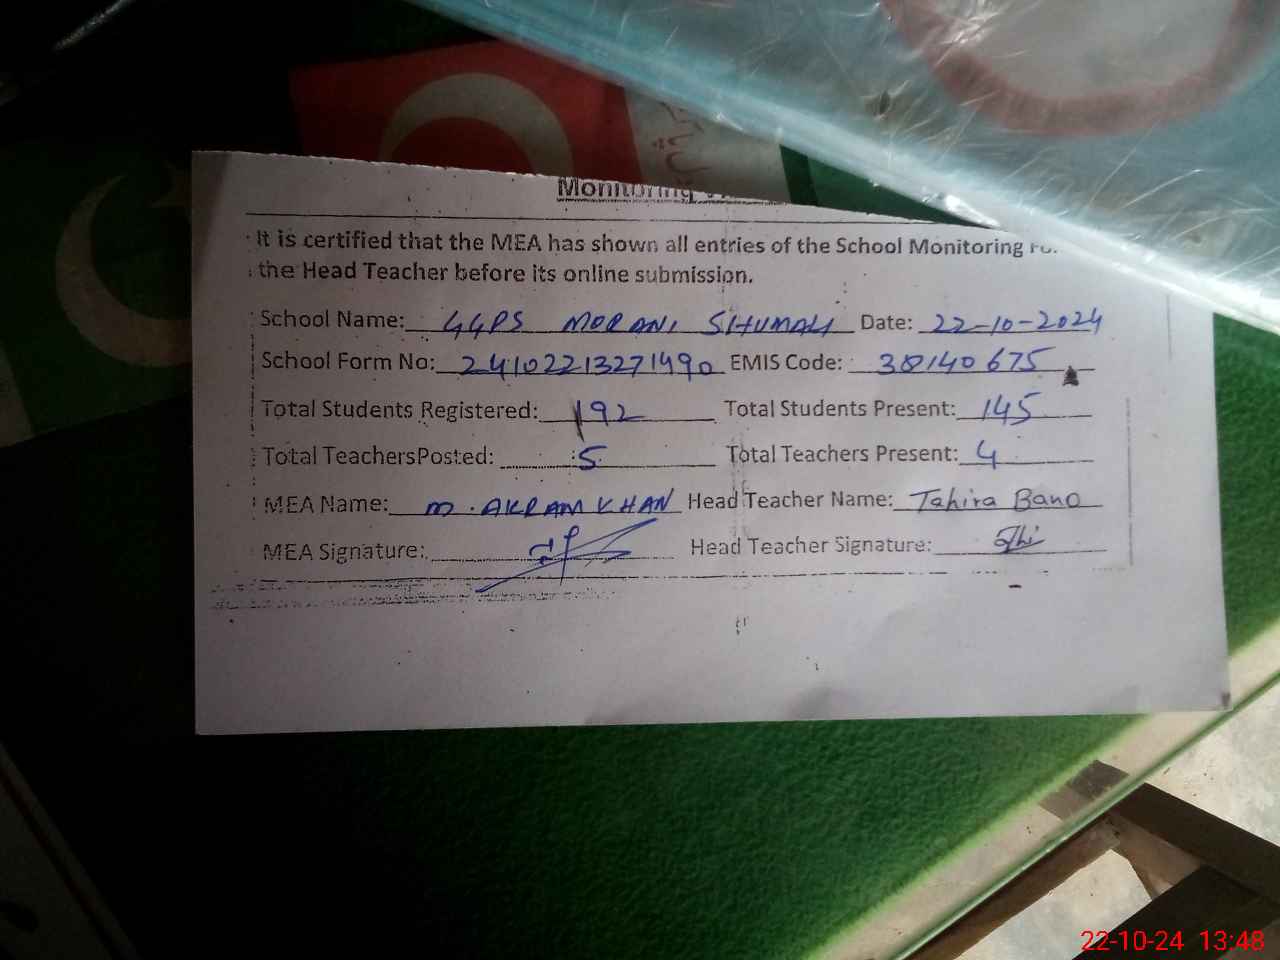 Monitoring
It is certified that the MEA has shown all entries of the School Monitoring
the Head Teacher before its online submission.
School Name: GGPS MORANI SHUMALI Date: 22-10-2024
School Form No: 241022213271490 EMIS Code: 38140675
Total Students Registered: 192 Total Students Present: 145
Total TeachersPosted: 5 Total Teachers Present: 4
MEA Name: M. AKRAM KHAN Head Teacher Name: Tahira Bano
MEA Signature: Head Teacher Signature:
22-10-24 13:48